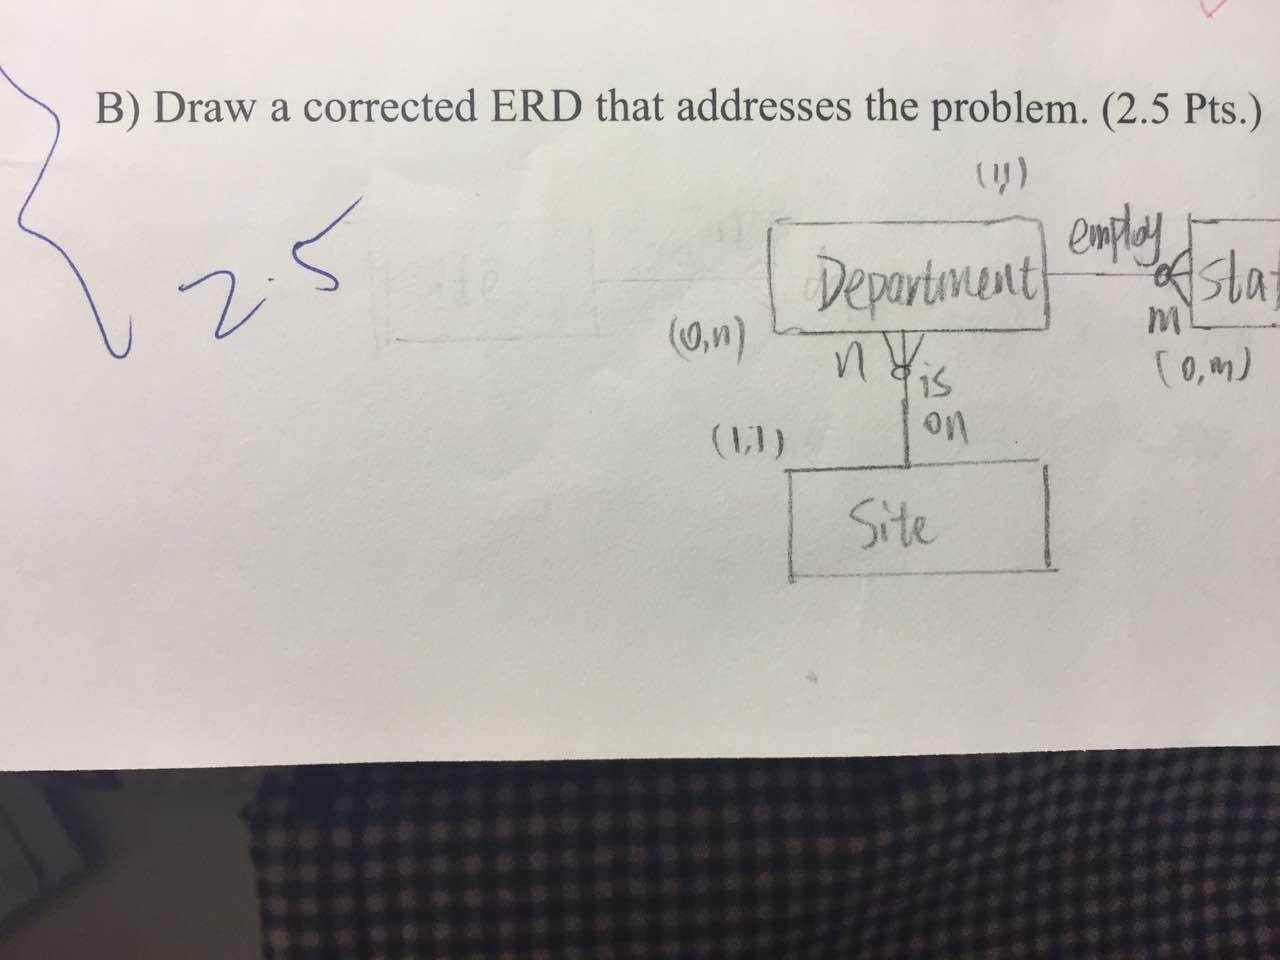 B) Draw a corrected ERD that addresses the problem. (2.5 Pts.)
2.5
(1,1)
employ
Department
Staf
m
(0,n)
n
(0,m)
is
on
(1,1)
Site